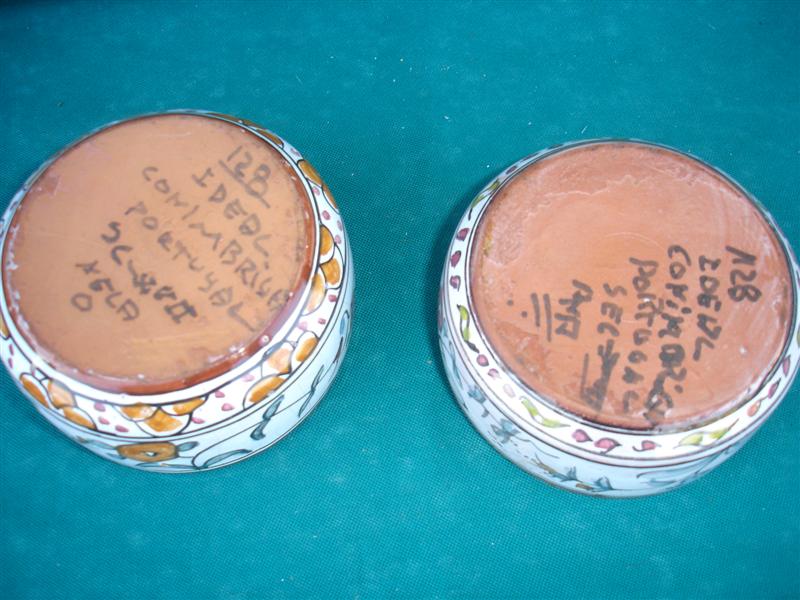 128
IDEAL
CONIMBRIGA
PORTUGAL
SC
AELA
O
128
IDEAL
CONIMBRIGA
PORTUGAL
SEC